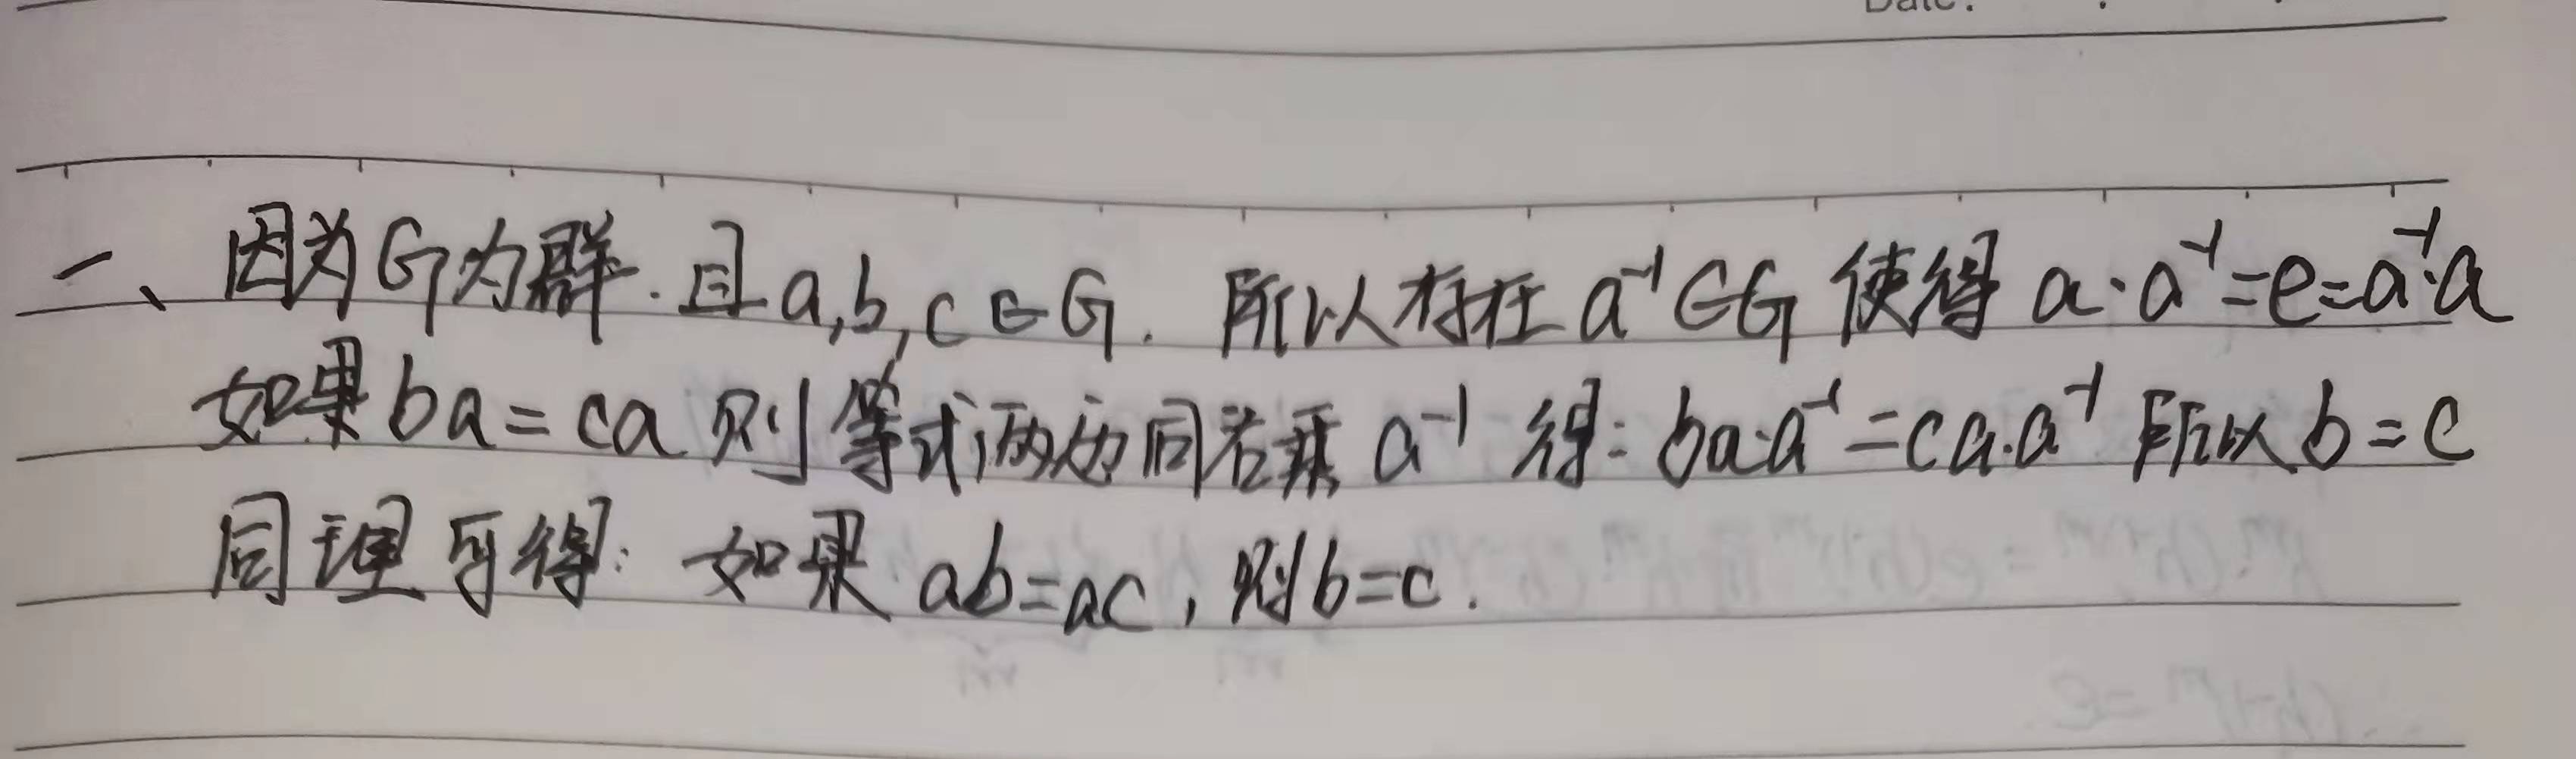 Date:
一、因为G为群.且a,b,c∈G. 所以存在a⁻¹∈G 使得 a·a⁻¹=e=a⁻¹·a
如果ba=ca 则等式两边同右乘 a⁻¹ 得: ba·a⁻¹=ca.a⁻¹ 所以b=c
同理可得: 如果 ab=ac, 则b=c.